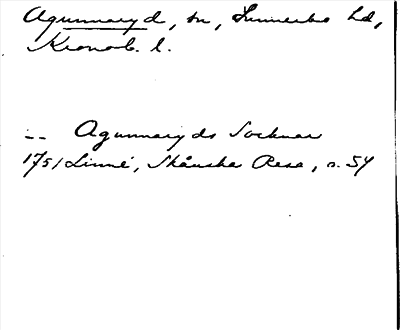 Agunnaryd, sn, Sunnerbo hd,
Kronob. l.
-- Agunnaryds Socknar
1751 Linné, Skånska Resa, s. 54